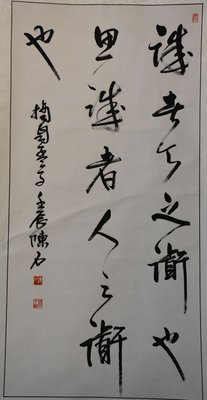 誠者天之衜也
思誠者人之衜
也
摘自孟子 壬辰 陳石